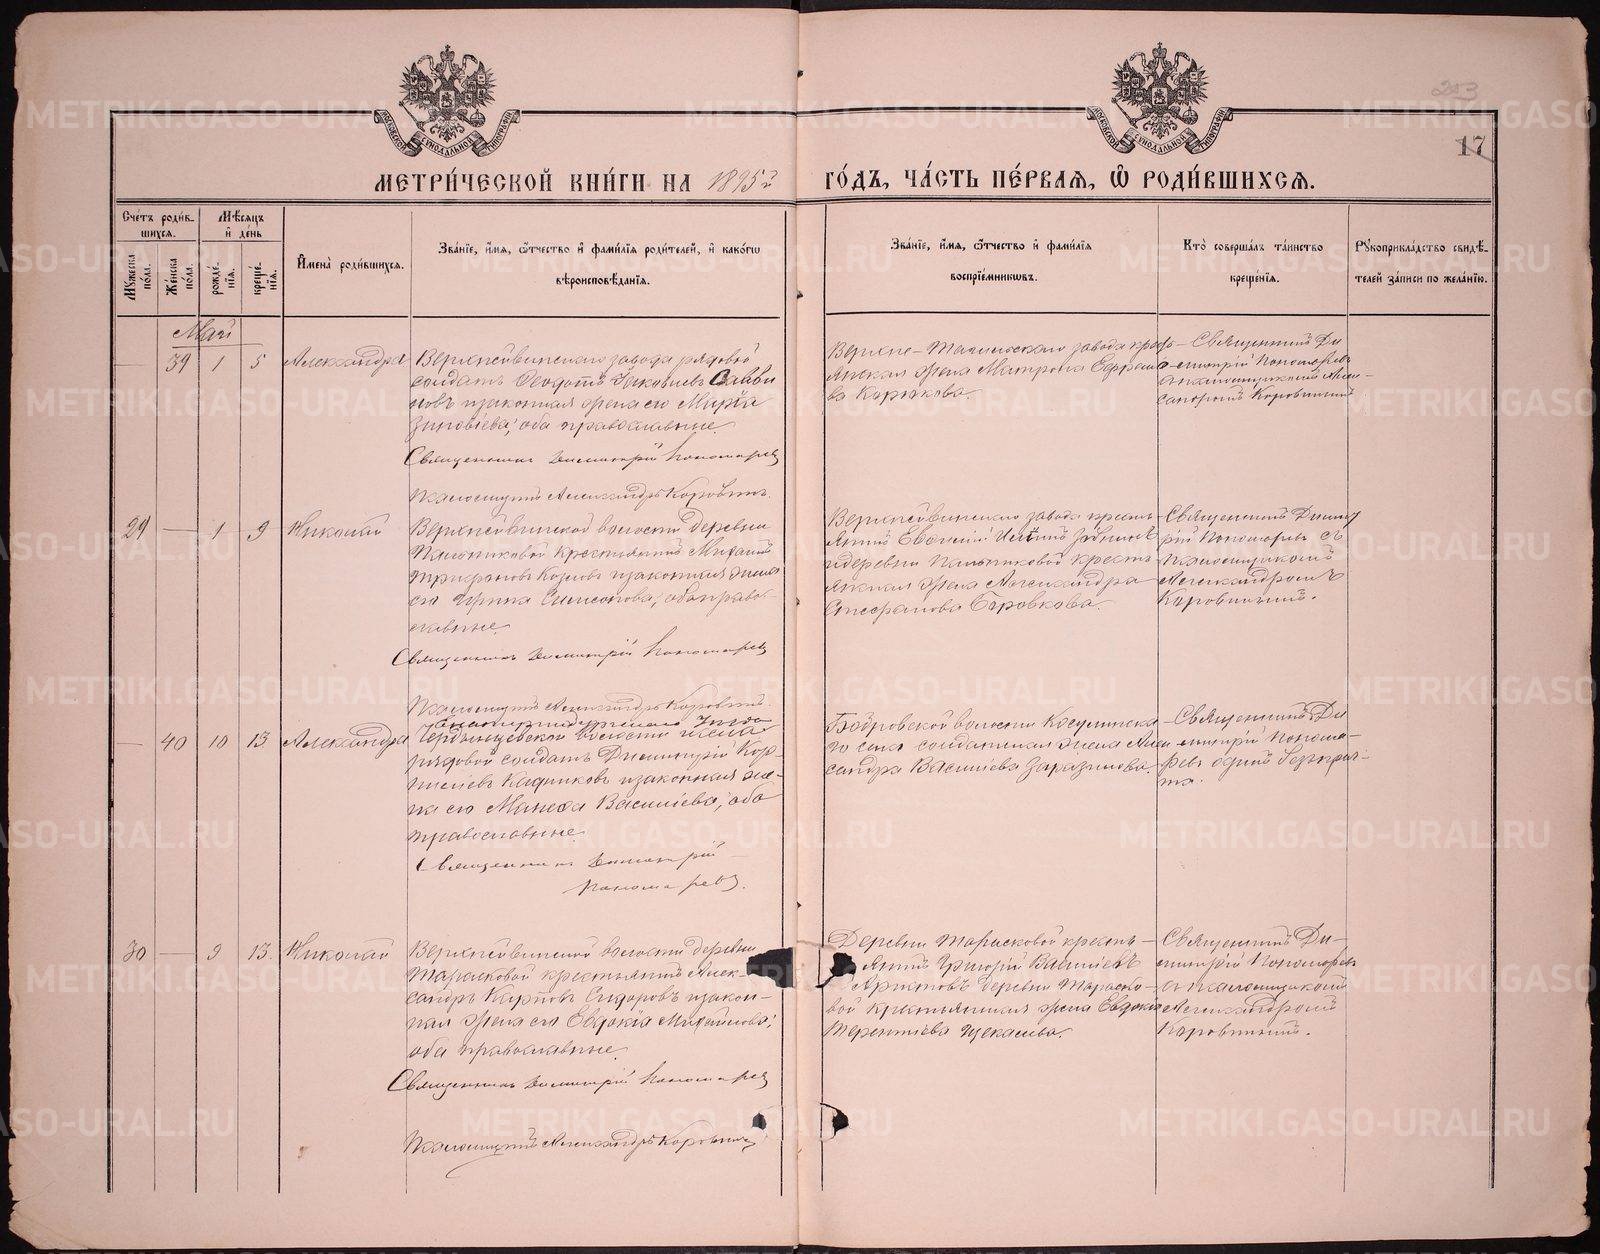 213
17
МОСКОВСКОЙ СѴНОДАЛЬНОЙ ТИПОГРАФІИ
МОСКОВСКОЙ СѴНОДАЛЬНОЙ ТИПОГРАФІИ
МЕТРИ́ЧЕСКОЙ КНИ́ГИ НА 1895й ГО́ДЪ, ЧА́СТЬ ПЕ́РВАЯ, Ѡ РОДИ́ВШИХСЯ.
Сче́тъ роди́в-
шихся.
Мꙋжеска пола.
Же́нска по́ла.
Мѣ́сяцъ
и҆ де́нь
рожде́-
нїя.
креще́-
нїя.
И҆мена̀ роди́вшихся.
Зва́нїе, и҆́мя, ѻ҆́тчество и҆ фами́лїя роди́телей, и҆ како́гѡ
вѣроисповѣ́данїя.
Зва́нїе, и҆́мя, ѻ҆́тчество и҆ фами́лїя
воспрїе́мникѡвъ.
Кто̀ соверша́лъ та́инство
креще́нїя.
Рꙋкоприкла́дство свидѣ́-
телей за́писи по жела́нїю.
Май
— 39 1 5 Александра
Верхнейвинскаго завода рядовой
солдатъ Ѳеодотъ Іаковлевъ Савви
новъ и законная жена его Марія
Зиновіева, оба православные.
Священникъ Димитрій Пономаревъ
Псаломщикъ Александръ Коровинъ.
Верхне-Тагильскаго завода кресть-
янская жена Матрона Ефремо-
ва Корюкова.
Священникъ Ди-
митрій Пономаревъ
съ псаломщикомъ Алек-
сандромъ Коровинымъ
29 — 1 9 Николай
Верхнейвинской волости деревни
Пальниковой крестьянинъ Михаилъ
Трифоновъ Козловъ и законная жена
его Ирина Симеонова, оба право-
славные.
Священникъ Димитрій Пономаревъ
Псаломщикъ Александръ Коровинъ.
Верхнейвинскаго завода кресть-
янинъ Евгеній
и деревни Пальниковой кресть-
янская жена Александра
Боровкова.
Священникъ Димит-
рій Пономаревъ съ
псаломщикомъ
Александромъ
Коровинымъ.
— 40 10 13 Александра
волости
рядовой солдатъ Димитрій Кор-
ниліевъ и законная же-
на его Васильева, оба
православные.
Священникъ Димитрій
Пономаревъ.
Бобровской волости Косулинска-
го села солдатская жена Алек-
сандра Васильева
Священникъ Ди-
митрій Понома-
ревъ одинъ
30 — 9 13. Николай
Верхнейвинской волости деревни
Тарасковой крестьянинъ Алек-
сандръ Карповъ Сидоровъ и закон-
ная жена его Евдокія Михайлова,
оба православные.
Священникъ Димитрій Пономаревъ
Псаломщикъ Александръ Коровинъ
Деревни Тарасковой кресть-
янинъ Григорій Васильевъ
Аристовъ деревни Тараско-
вой крестьянская жена Евдокія
Терентьева Щекалева.
Священникъ Ди-
митрій Пономаревъ
съ псаломщикомъ
Александромъ
Коровинымъ.
METRIKI.GASO-URAL.RU